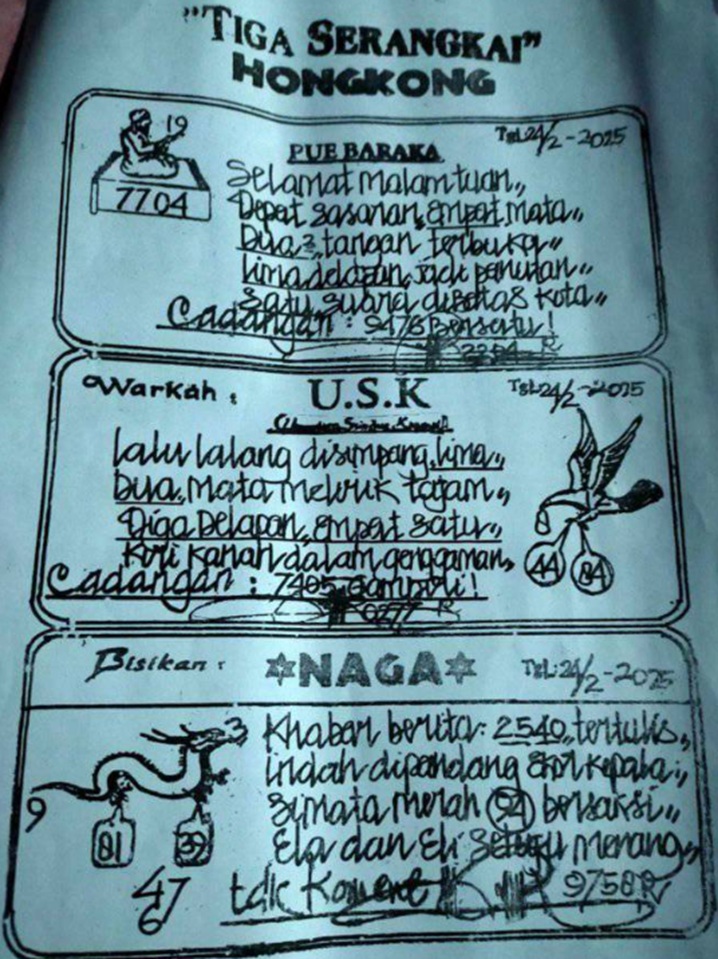 "TIGA SERANGKAI"
HONGKONG
19
7704
PUE BARAKA
Tgl: 24/2-2025
Selamat malam tuan,,
Depat sasaran, empat mata,,
Dua 2, tangan terbuka,,
lima delapan, jadi panutan,,
Satu suara diatas kota,,
Cadangan : 9476 Bersatu!
R
Warkah :
U.S.K
Tgl: 24/2-2025
lalu lalang disimpang lima,,
Dua, mata melirik tajam,,
Diga Delapan, empat satu,,
Kiri kanan dalam genggaman,,
44
84
Cadangan : 7405 gampoli!
0277 R
Bisikan :
NAGA
Tgl: 24/2-2025
3
9
81
39
47
6
Khabar berita: 2540, tertulis,,
indah dipandang ekor kepala:,,
simata merah 94 bersaksi,,
Ela dan Eli setuju menang,,
tdk
9758 R